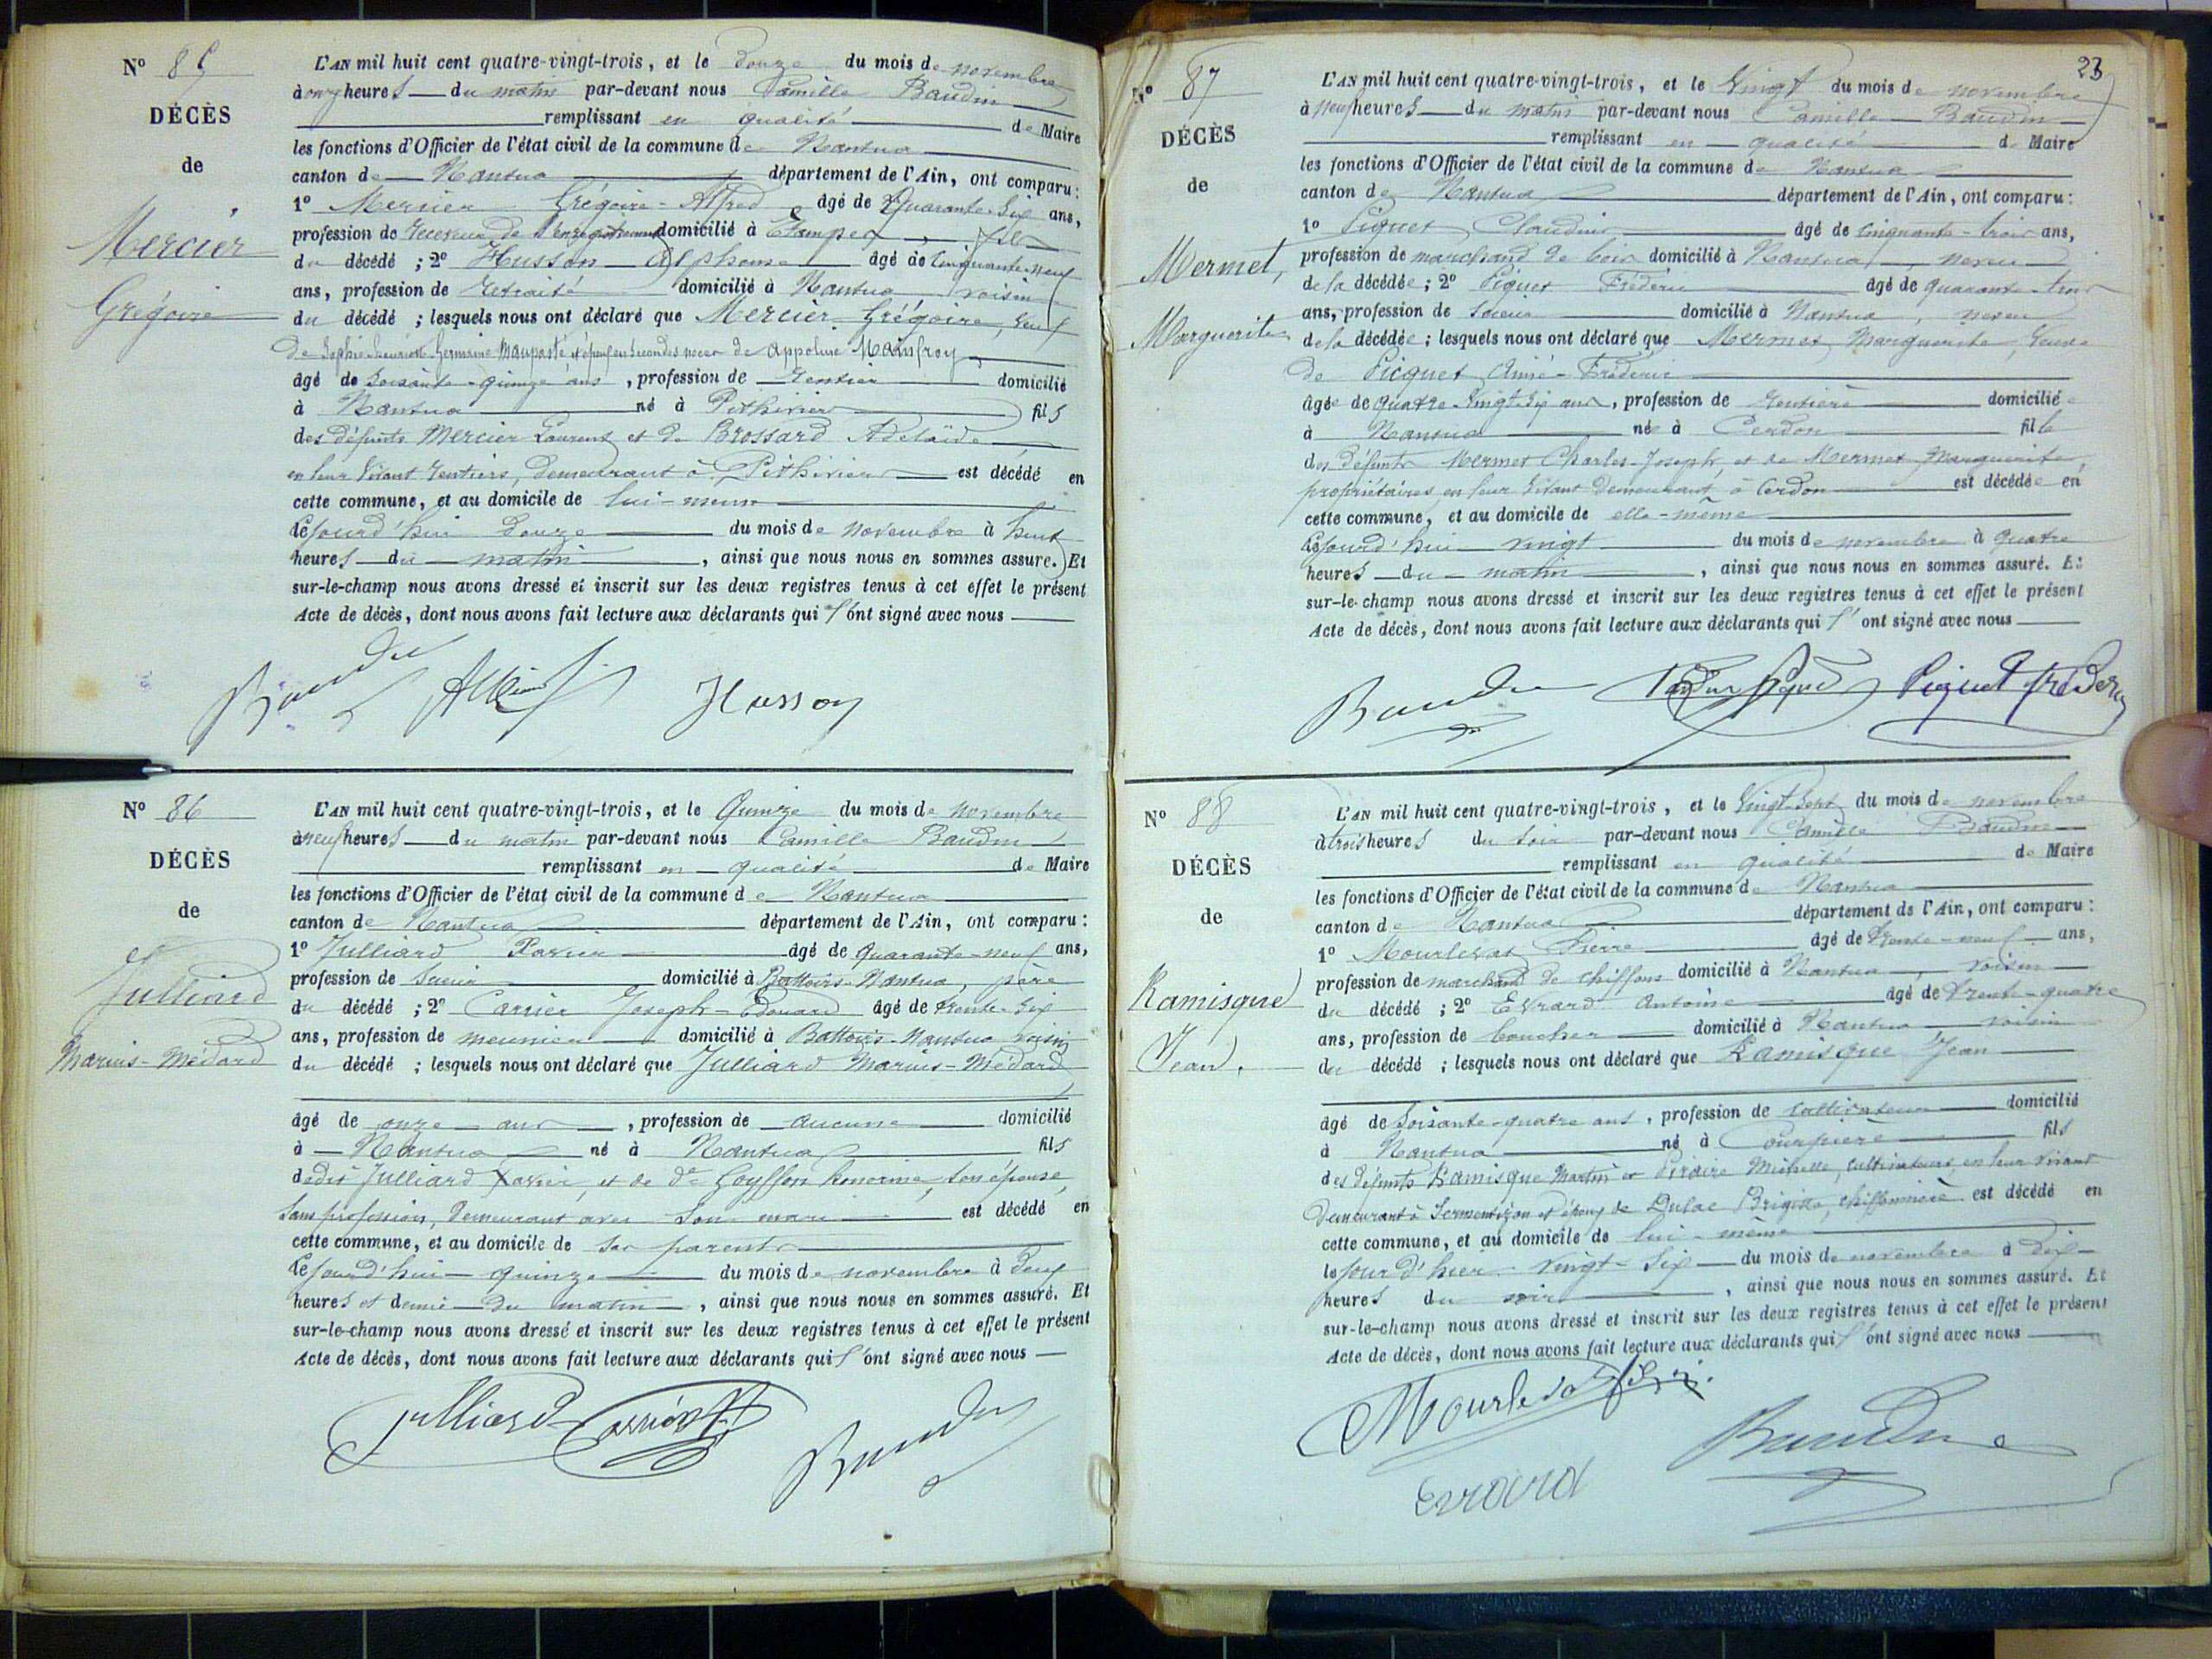 Nº 85
DÉCÈS
de
Mercier
Grégoire
L'AN mil huit cent quatre-vingt-trois, et le Douze du mois de novembre
à onze heures du matin par-devant nous Camille Baudin
remplissant en qualité de Maire
les fonctions d'Officier de l'état civil de la commune de Nantua
canton de Nantua département de l'Ain, ont comparu:
1º Mercier Grégoire-Alfred âgé de Quarante-Six ans,
profession de Receveur de l'enregistrement domicilié à Etampes, fils
du décédé ; 2º Husson Alphonse âgé de Cinquante-neuf
ans, profession de Retraité domicilié à Nantua voisin
du décédé ; lesquels nous ont déclaré que Mercier Grégoire, Veuf
de Sophie Germaine Maupasté et époux en secondes noces de Appoline Mainfroy
âgé de Soixante-quinze ans, profession de Rentier domicilié
à Nantua né à Pithiviers fils
des défunts Mercier Laurent et de Brossard Adelaïde
en leur Vivant rentiers, demeurant à Pithiviers est décédé en
cette commune, et au domicile de lui-même
Cejourd'hui douze du mois de novembre à huit
heures du matin, ainsi que nous nous en sommes assuré. Et
sur-le-champ nous avons dressé et inscrit sur les deux registres tenus à cet effet le présent
Acte de décès, dont nous avons fait lecture aux déclarants qui l'ont signé avec nous
Baudin Husson
Nº 86
DÉCÈS
de
Julliard
Marius-Médard
L'AN mil huit cent quatre-vingt-trois, et le Quinze du mois de novembre
à neuf heures du matin par-devant nous Camille Baudin
remplissant en qualité de Maire
les fonctions d'Officier de l'état civil de la commune de Nantua
canton de Nantua département de l'Ain, ont comparu:
1º Julliard Xavier âgé de quarante-neuf ans,
profession de Scieur domicilié à Battoirs-Nantua, père
du décédé ; 2º Carrier Joseph-Edouard âgé de trente-six
ans, profession de meunier domicilié à Battoirs-Nantua voisin
du décédé ; lesquels nous ont déclaré que Julliard Marius-Médard
âgé de onze ans, profession de aucune domicilié
à Nantua né à Nantua fils
dudit Julliard Xavier, et de de Goyffon honorine, son épouse,
Sans profession, demeurant avec son mari est décédé en
cette commune, et au domicile de ses parents
Cejourd'hui quinze du mois de novembre à deux
heures et demie du matin, ainsi que nous nous en sommes assuré. Et
sur-le-champ nous avons dressé et inscrit sur les deux registres tenus à cet effet le présent
Acte de décès, dont nous avons fait lecture aux déclarants qui l'ont signé avec nous
Julliard Baudin
23
Nº 87
DÉCÈS
de
Mermet,
Marguerite
L'AN mil huit cent quatre-vingt-trois, et le Vingt du mois de novembre
à neuf heures du matin par-devant nous Camille Baudin
remplissant en qualité de Maire
les fonctions d'Officier de l'état civil de la commune de Nantua
canton de Nantua département de l'Ain, ont comparu:
1º Piquet Claudius âgé de Cinquante-trois ans,
profession de marchand de bois domicilié à Nantua, neveu
de la décédée ; 2º Piquet Frédéric âgé de quarante-trois
ans, profession de Scieur domicilié à Nantua, neveu
de la décédée ; lesquels nous ont déclaré que Mermet Marguerite, Veuve
de Picquet Aimé-Frédéric
âgée de quatre-vingt-six ans, profession de Rentière domiciliée
à Nantua née à Cerdon fille
des défunts Mermet Charles-Joseph, et de Mermet Marguerite,
propriétaires en leur vivant demeurant à Cerdon est décédée en
cette commune, et au domicile de elle-même
Cejourd'hui vingt du mois de novembre à quatre
heures du matin, ainsi que nous nous en sommes assuré. Et
sur-le-champ nous avons dressé et inscrit sur les deux registres tenus à cet effet le présent
Acte de décès, dont nous avons fait lecture aux déclarants qui l'ont signé avec nous
Baudin Piquet Frédéric
Nº 88
DÉCÈS
de
Ramisque
Jean.
L'AN mil huit cent quatre-vingt-trois, et le Vingt-Sept du mois de novembre
à trois heures du soir par-devant nous Camille Baudin
remplissant en qualité de Maire
les fonctions d'Officier de l'état civil de la commune de Nantua
canton de Nantua département de l'Ain, ont comparu:
1º Mourlevat Pierre âgé de trente-neuf ans,
profession de marchand de chiffons domicilié à Nantua, voisin
du décédé ; 2º Evrard Antoine âgé de trente-quatre
ans, profession de boucher domicilié à Nantua, voisin
du décédé ; lesquels nous ont déclaré que Ramisque Jean
âgé de Soixante-quatre ans, profession de Cultivateur domicilié
à Nantua né à Courpière fils
des défunts Ramisque Martin et Michelle, cultivateurs en leur vivant
demeurant à Sermentizon et époux de Dulac Brigitte, chiffonnière est décédé en
cette commune, et au domicile de lui-même
le jour d'hier vingt-six du mois de novembre à dix
heures du soir, ainsi que nous nous en sommes assuré. Et
sur-le-champ nous avons dressé et inscrit sur les deux registres tenus à cet effet le présent
Acte de décès, dont nous avons fait lecture aux déclarants qui l'ont signé avec nous
Mourlevat
Evrard Baudin